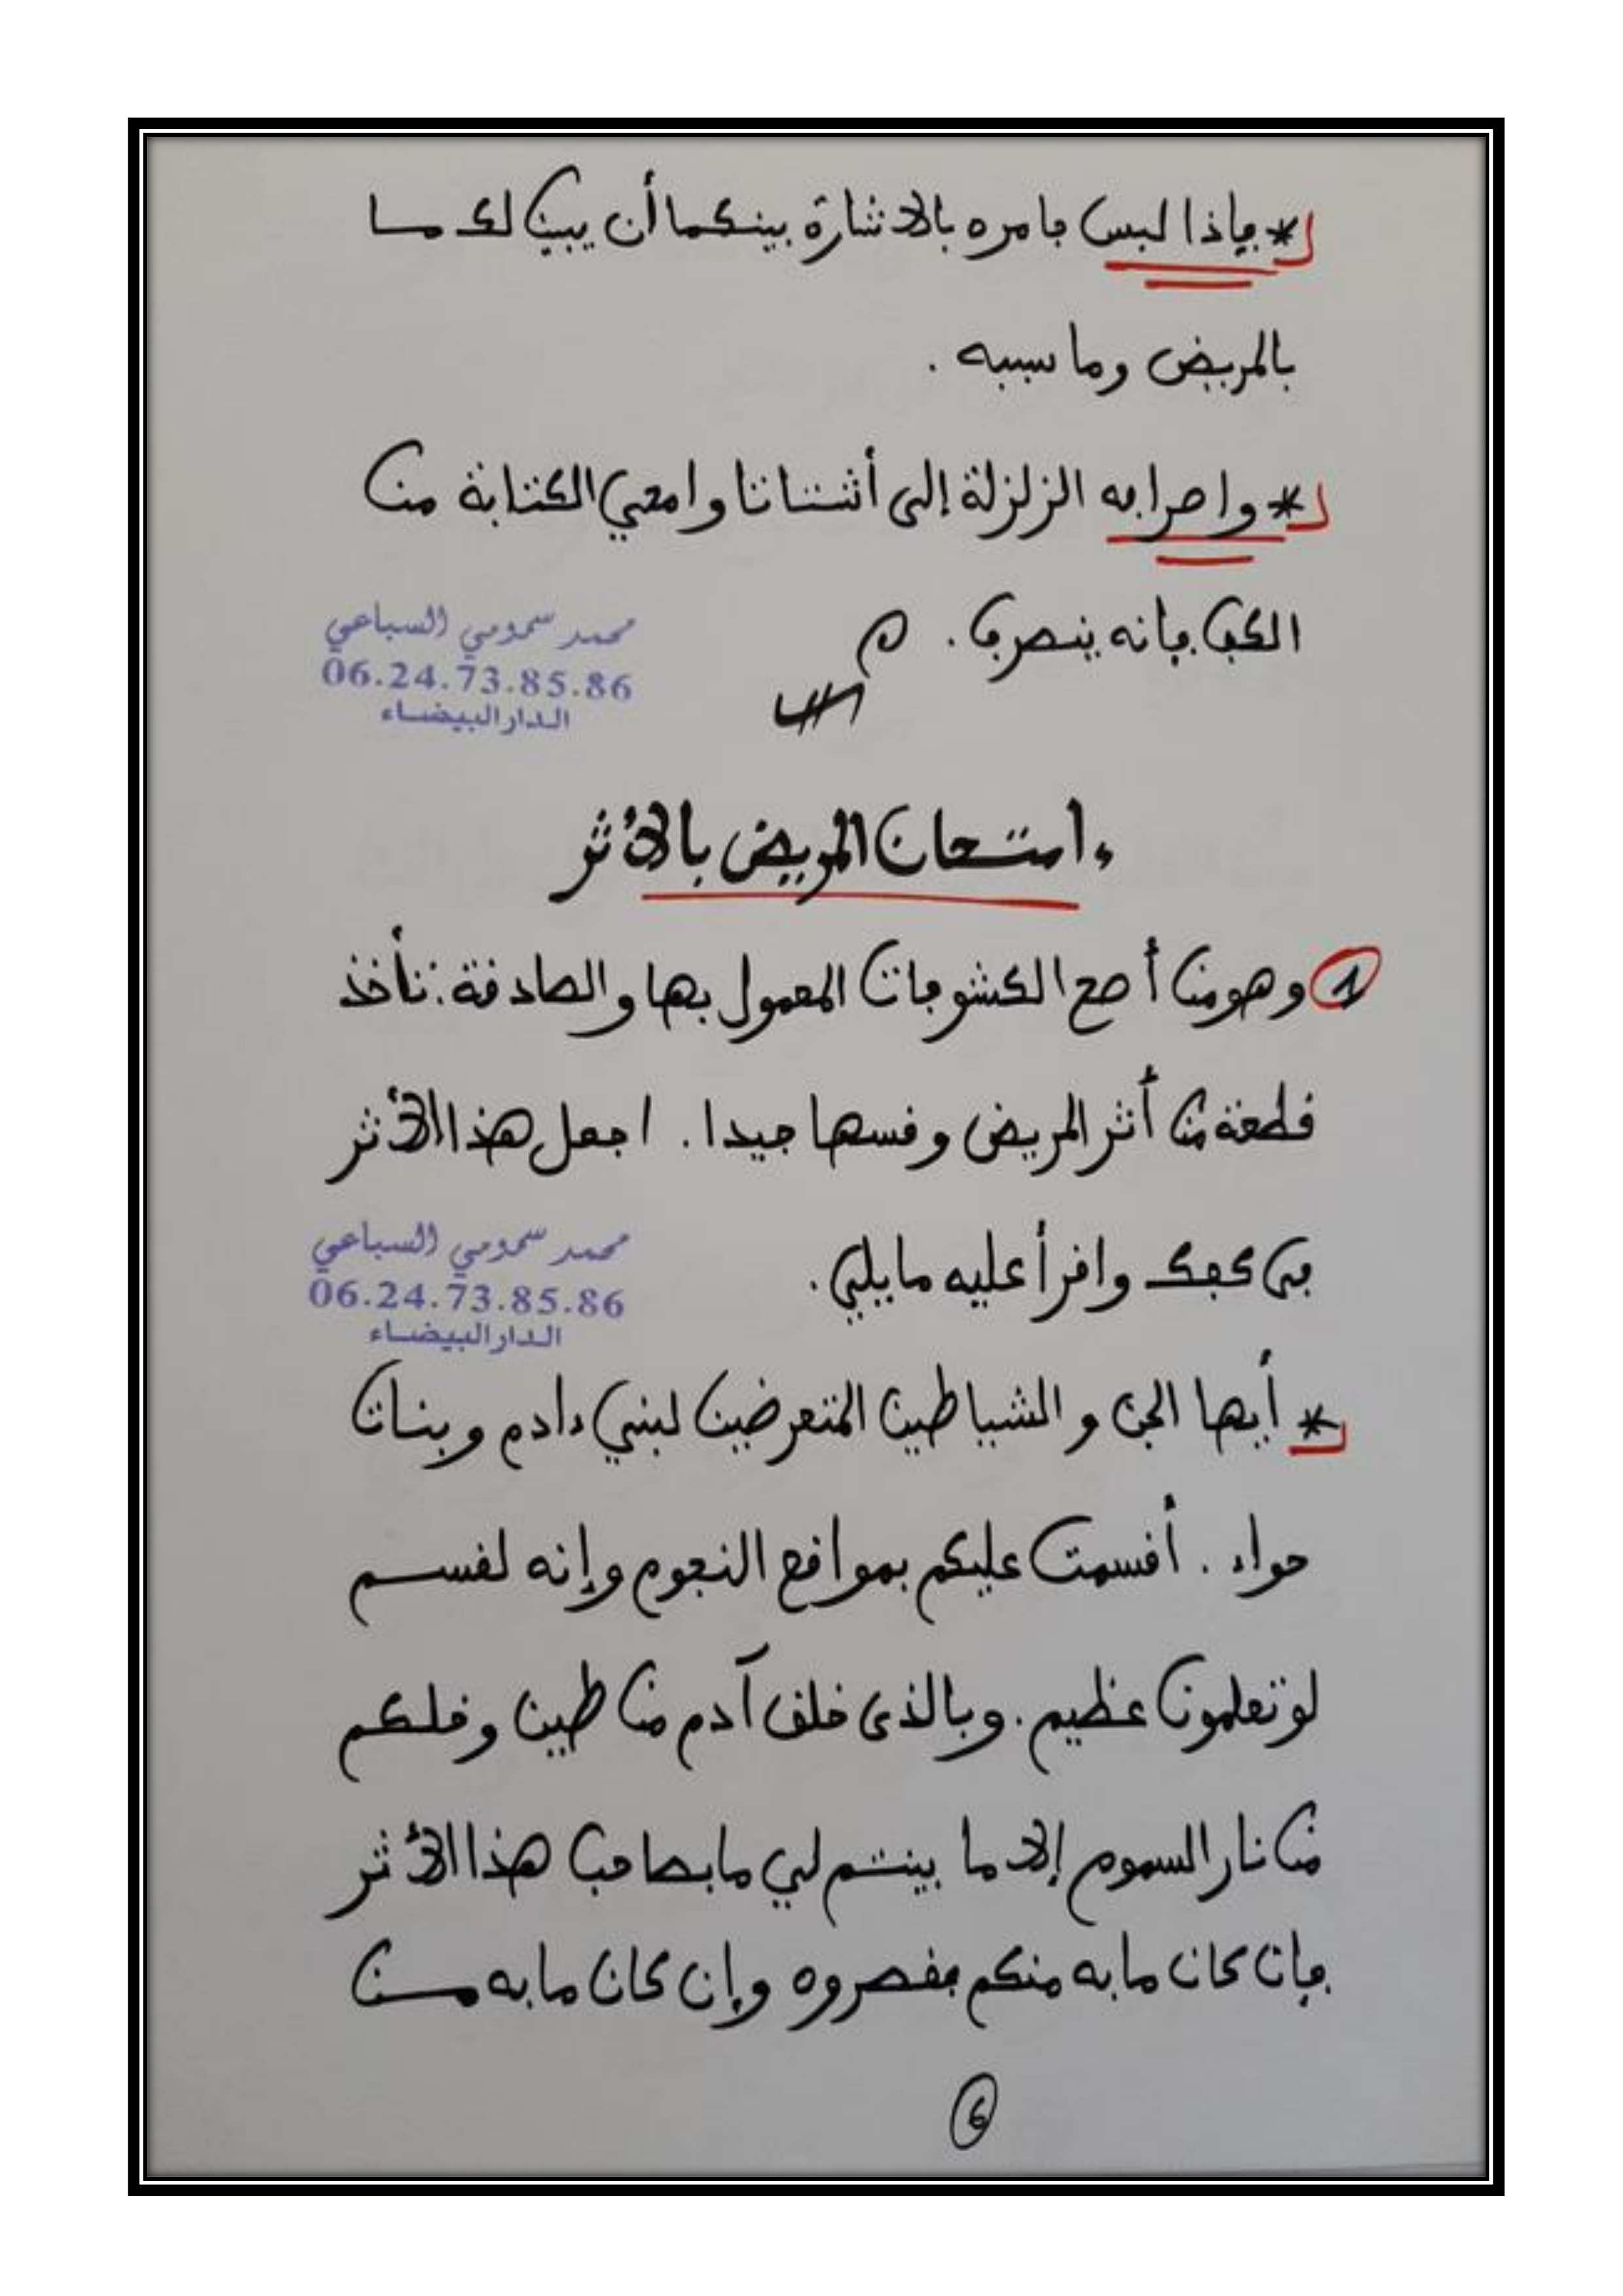 * فإذا لبس فامره بالاشارة بينكما أن يبين لك ما
بالمريض وما سببه .
* واصرافه الزلزلة إلى أشتاتا وامحي الكتابة من
الكف فإنه ينصرف .
محمد سمومي السباعي
06.24.73.85.86
الدار البيضاء
ءامتحان المريض بالأثر
1 وهو من أصح الكشوفات المعمول بها والصادقة : تأخذ
قطعة من أثر المريض وقسها جيدا . اجعل هذا الأثر
في كفك واقرأ عليه مايلي .
محمد سمومي السباعي
06.24.73.85.86
الدار البيضاء
* أيها الجن و الشياطين المتعرضين لبني ءادم وبنات
حواء . أقسمت عليكم بمواقع النجوم وإنه لقسم
لو تعلمون عظيم . وبالذي خلق آدم من طين وخلقكم
من نار السموم إلا ما بينتم لي ما بصاحب هذا الأثر
فإن كان ما به منكم فقصروه وإن كان ما به من
6